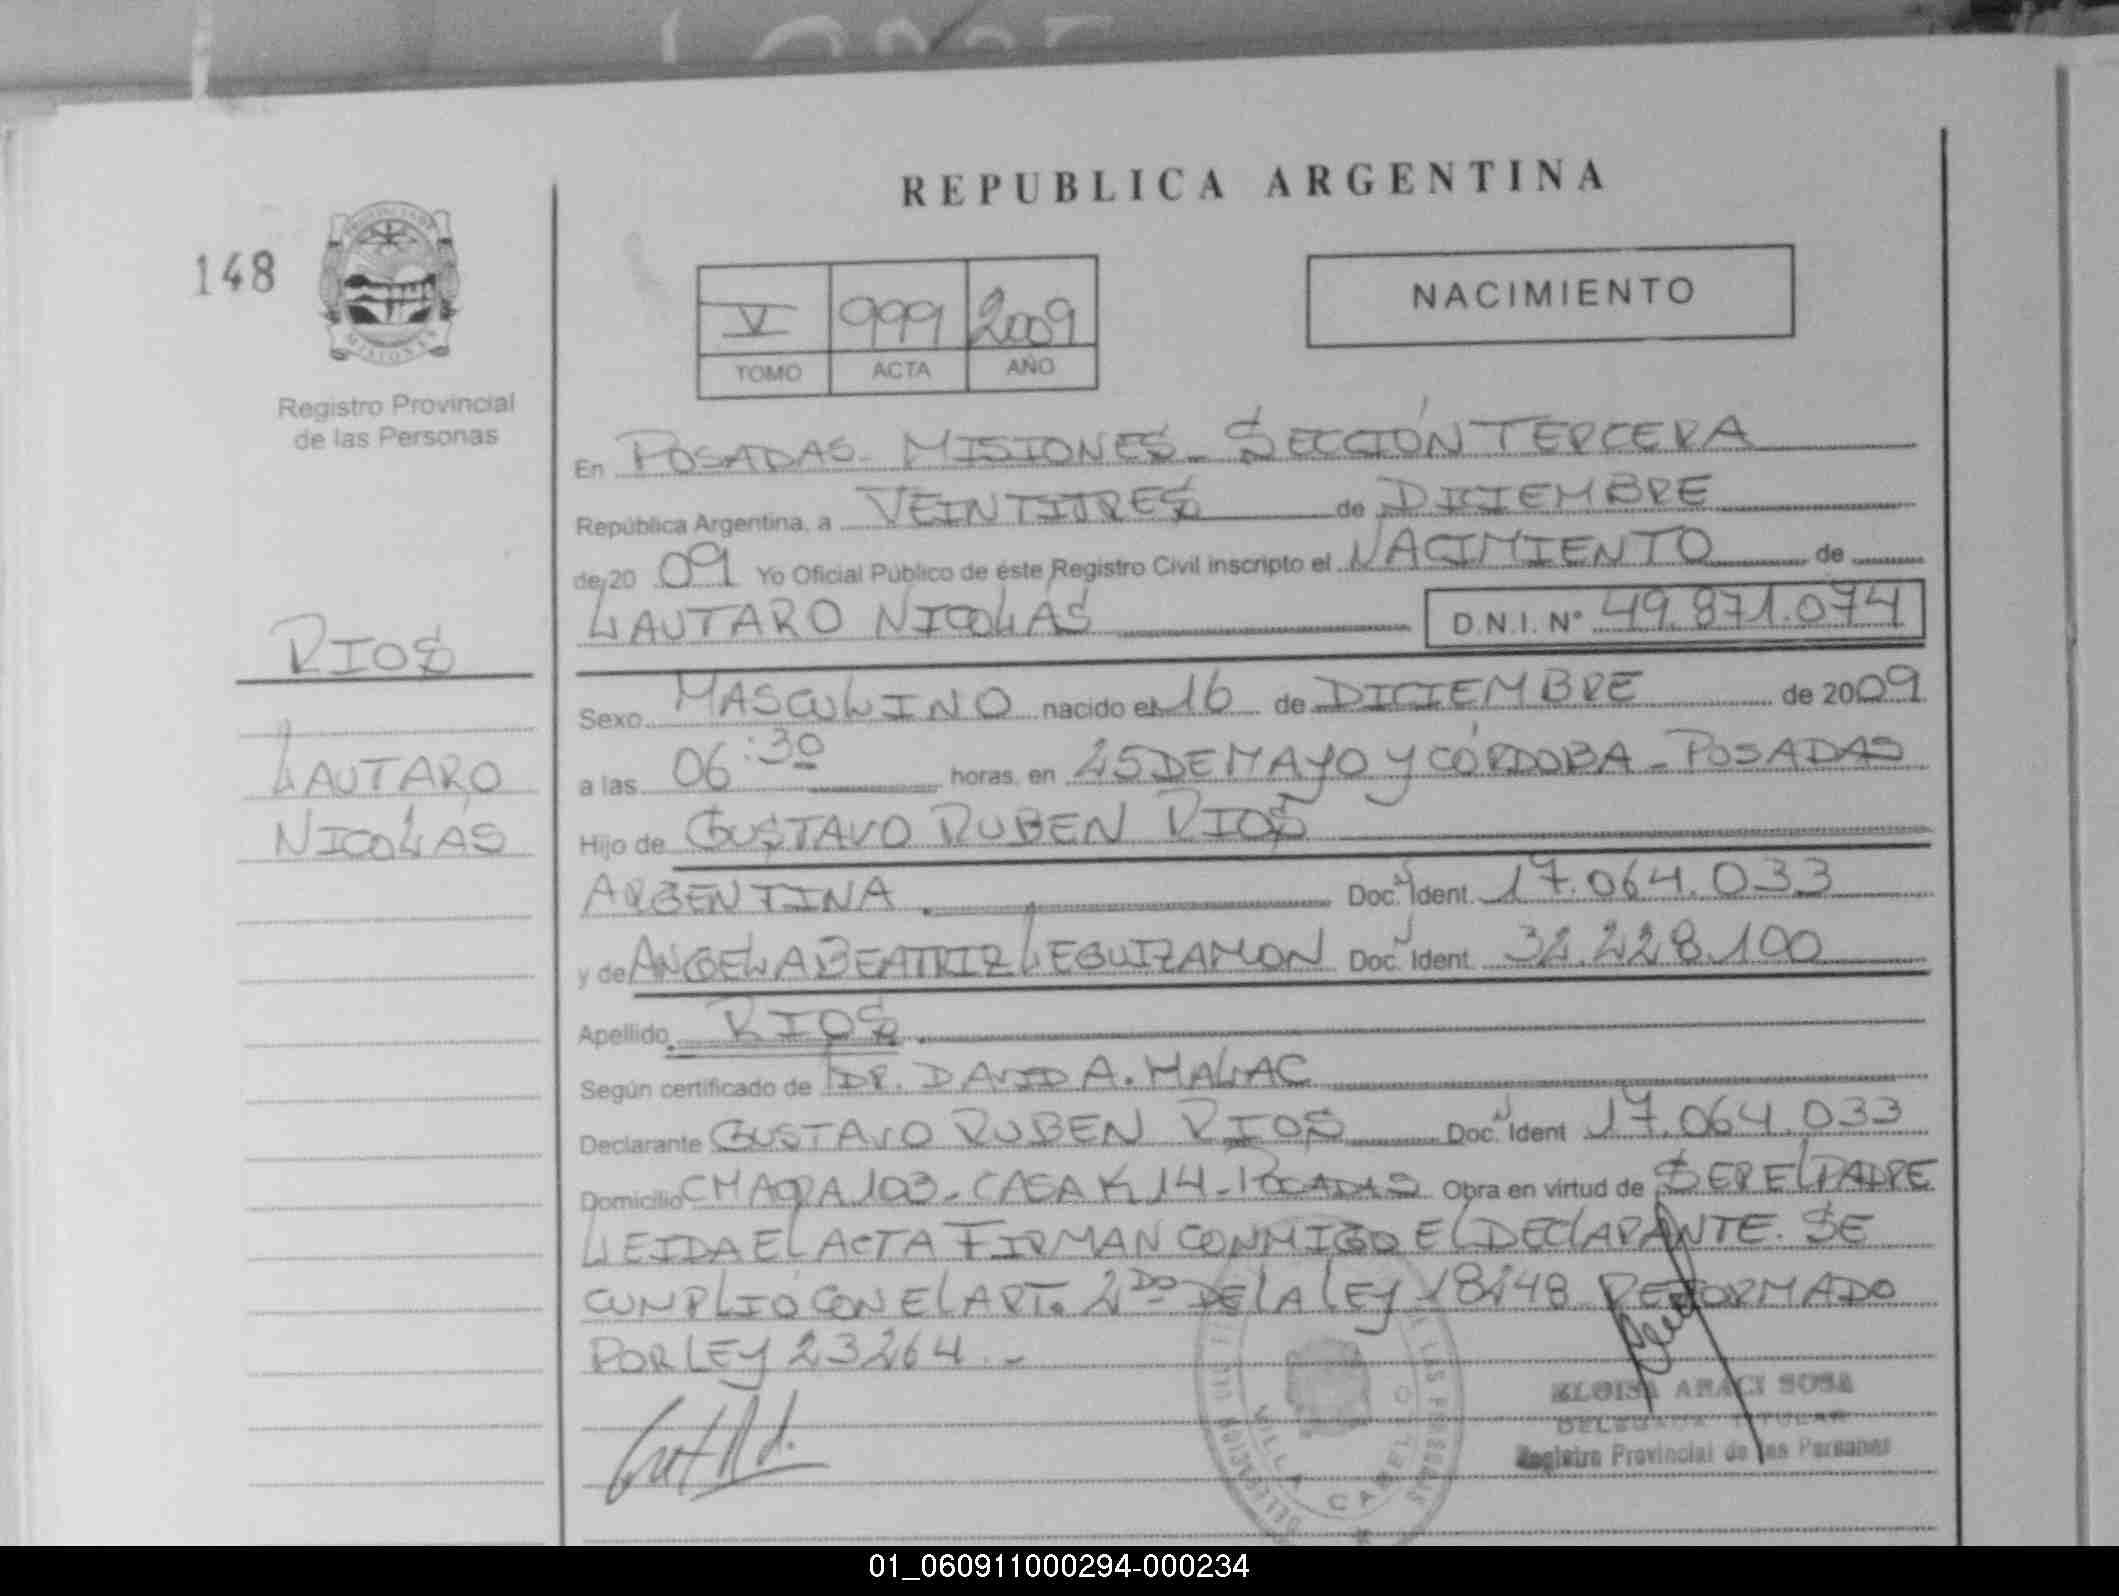 REPUBLICA ARGENTINA
148
PROVINCIA DE
MISIONES
Registro Provincial
de las Personas
V 999 2009
TOMO ACTA AÑO
NACIMIENTO
En POSADAS - MISIONES - SECCIÓN TERCERA
República Argentina, a VEINTITRES de DICIEMBRE
de 20 09 Yo Oficial Público de éste Registro Civil inscripto el NACIMIENTO de
LAUTARO NICOLÁS D.N.I. N° 49.871.074
RIOS
LAUTARO
NICOLÁS
Sexo MASCULINO nacido el 16 de DICIEMBRE de 2009
a las 06:30 horas, en 25 DE MAYO Y CÓRDOBA - POSADAS
Hijo de GUSTAVO RUBEN RIOS
ARGENTINA Doc. Ident. 17.064.033
y de ANGELA BEATRIZ LEGUIZAMON Doc. Ident. 32.228.100
Apellido RIOS
Según certificado de DR. DAVID A. MALAC
Declarante GUSTAVO RUBEN RIOS Doc. Ident 17.064.033
Domicilio CHACRA 103 - CASA K 14 - POSADAS Obra en virtud de SER EL PADRE
LEIDA EL ACTA FIRMAN CONMIGO EL DECLARANTE. SE
CUMPLIÓ CON EL ART. 2DO DE LA LEY 18248 REFORMADO
POR LEY 23264.-
ELOISA ARACI SOSA
DELEGADA TITULAR
Registro Provincial de las Personas
VILLA CABELLO
01_060911000294-000234